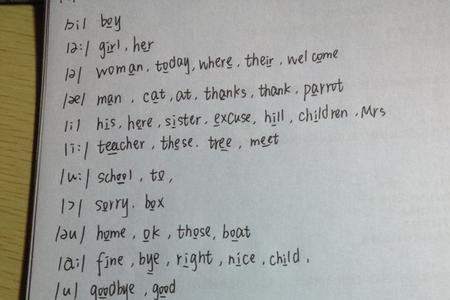 /ɔi/ boy
/ə:/ girl, her
/ə/ woman, today, where, their, welcome
/æ/ man, cat, at, thanks, thank, parrot
/i/ his, here, sister, excuse, hill, children, Mrs
/i:/ teacher, these. tree, meet
/u:/ school, to,
/ɔ/ sorry. box
/əu/ home, ok, those, boat
/ai/ fine, bye, right, nice, child,
/u/ goodbye, good